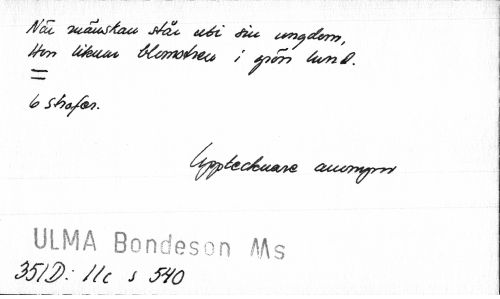 När mänskan står uti sin ungdom,
Hon liknar blomstren i grön lund.
=
6 strofer.
Upptecknare anonym
ULMA Bondeson Ms
351D: 11c s 540